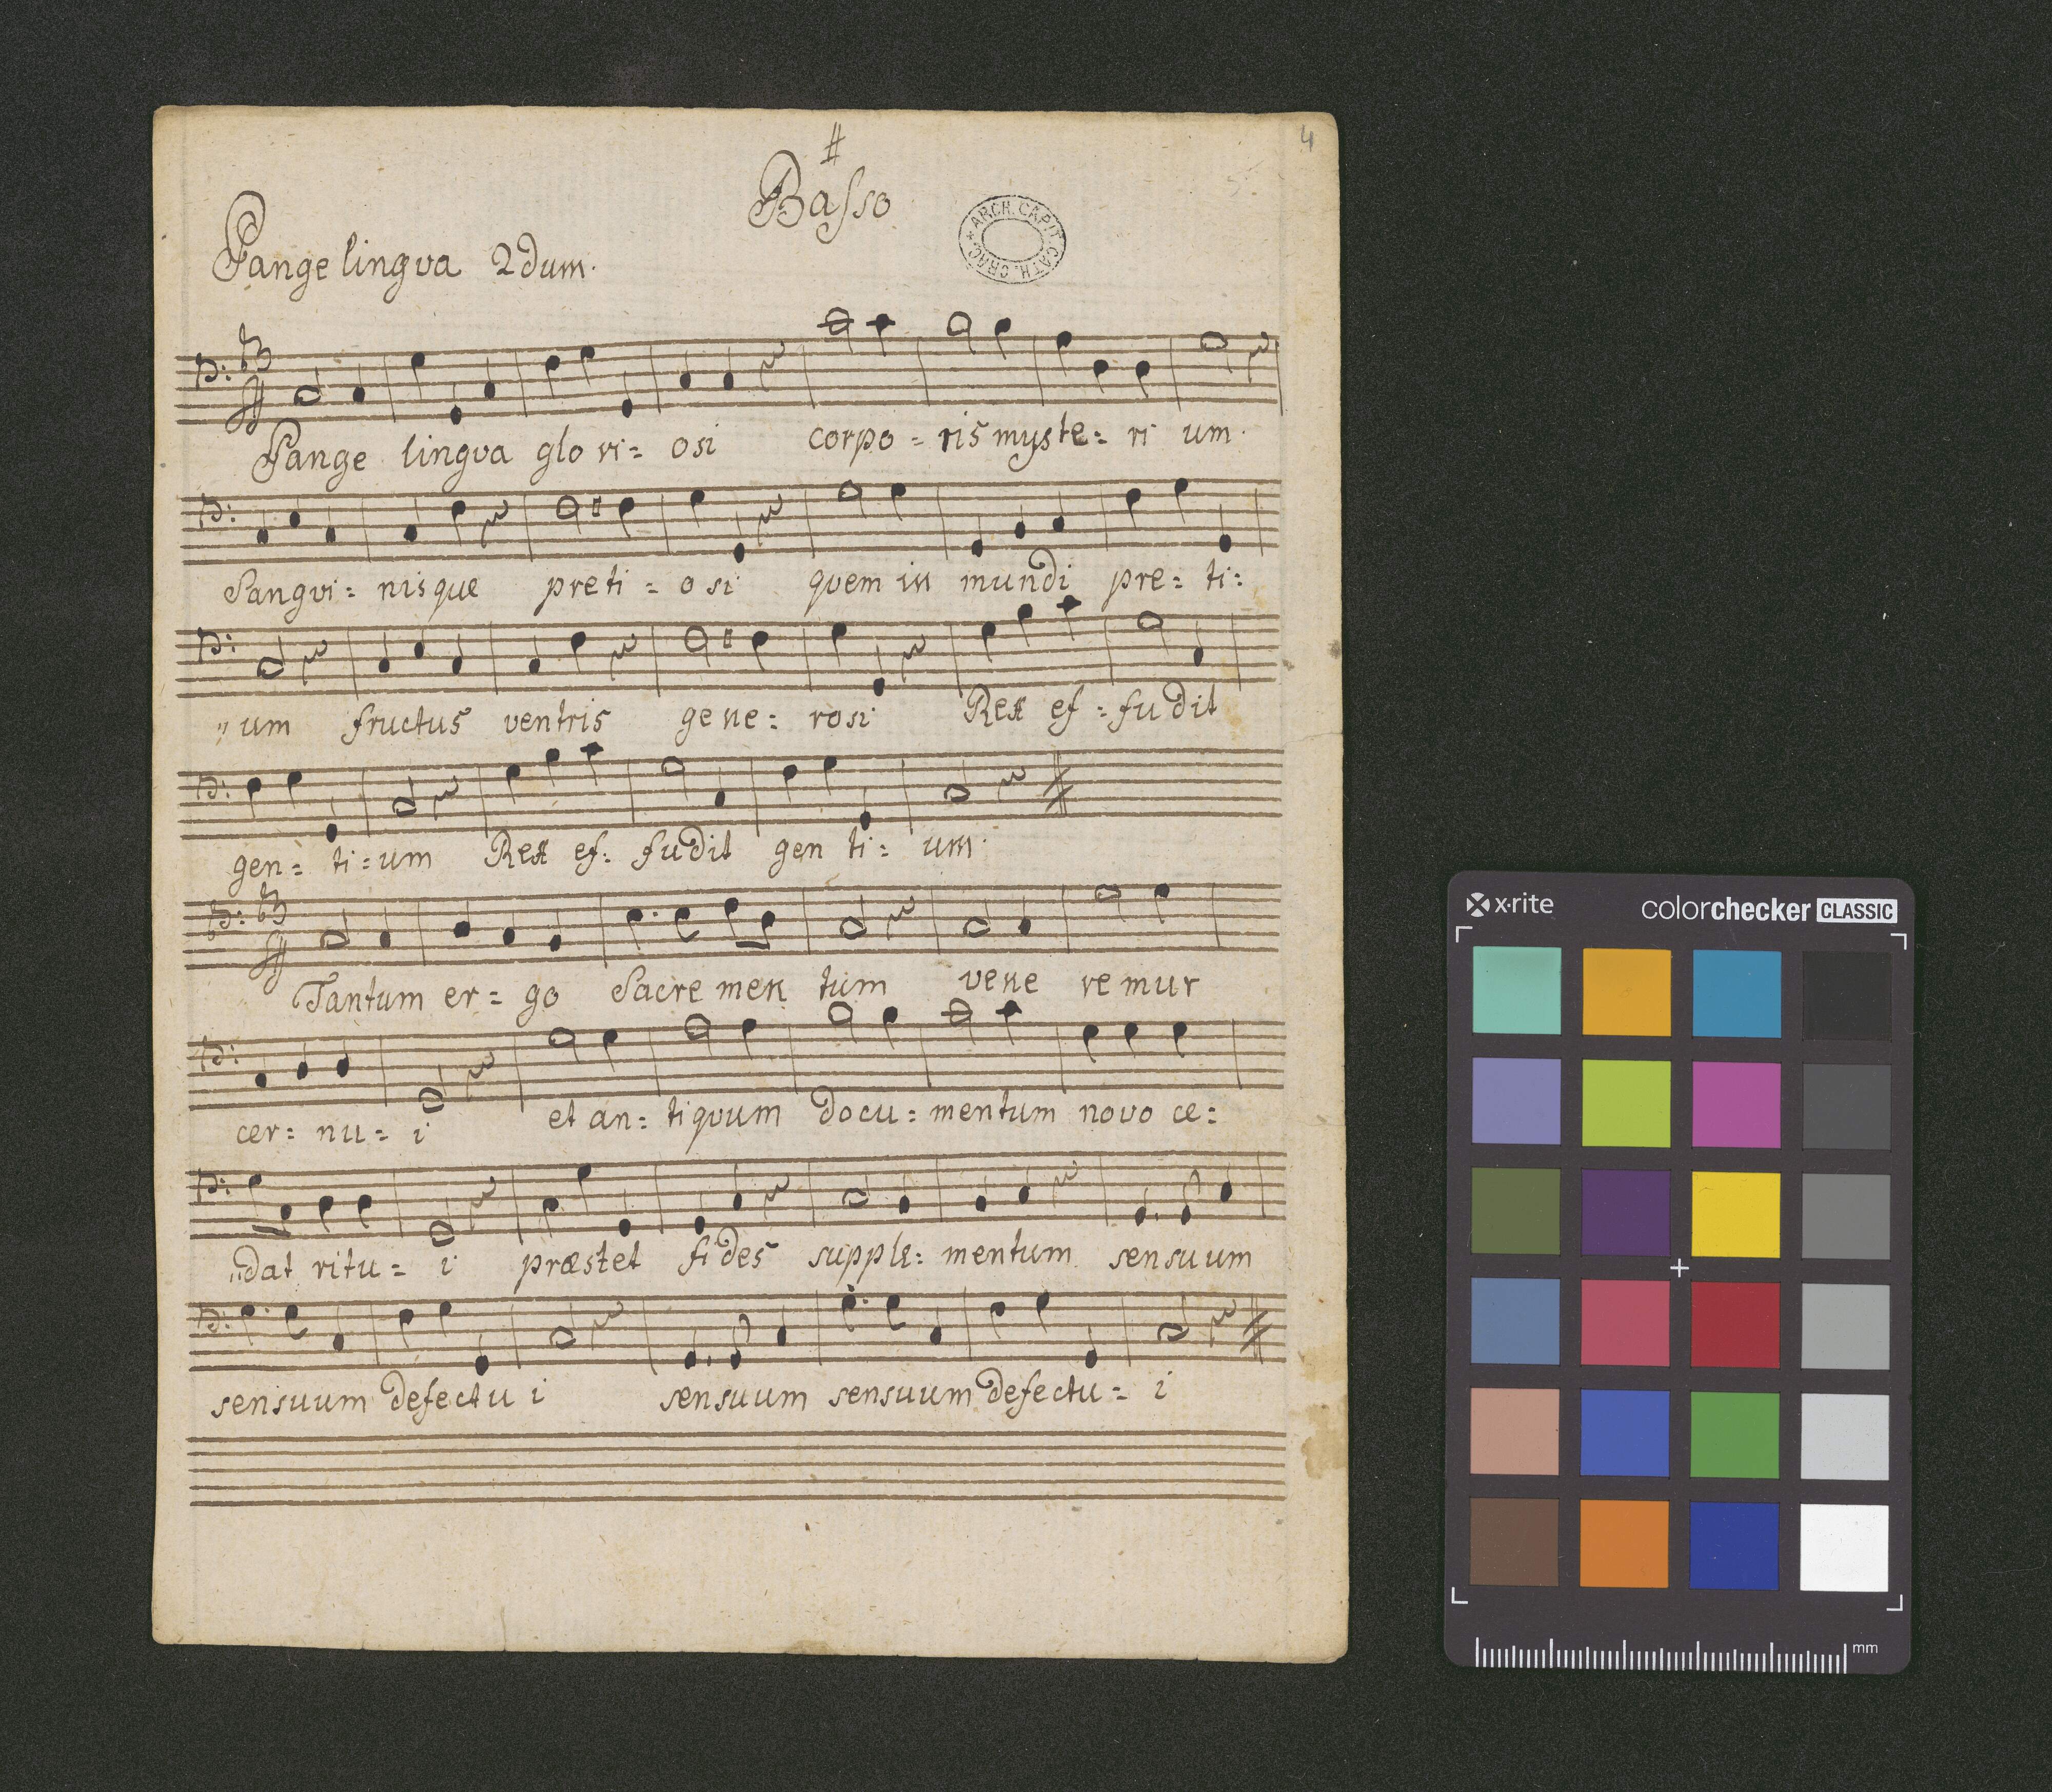 4
#
Basso
ARCH. CAPIT. CATH. CRAC.
Pange lingva 2dum.
Pange lingva glo ri= osi corpo = ris myste= ri um.
Sangvi= nisque preti = o si quem in mundi pre= ti=
„um fructus ventris gene= rosi Rex ef =fudit
gen= ti=um Rex ef= fudit gen ti= um.
Tantum er= go Sacre men tum vene re mur
cer= nu= i et an= tiqvum docu= mentum novo ce=
„dat ritu= i præstet fides supple= mentum sensuum
sensuum defectu i sensuum sensuum defectu= i
x·rite colorchecker CLASSIC
mm